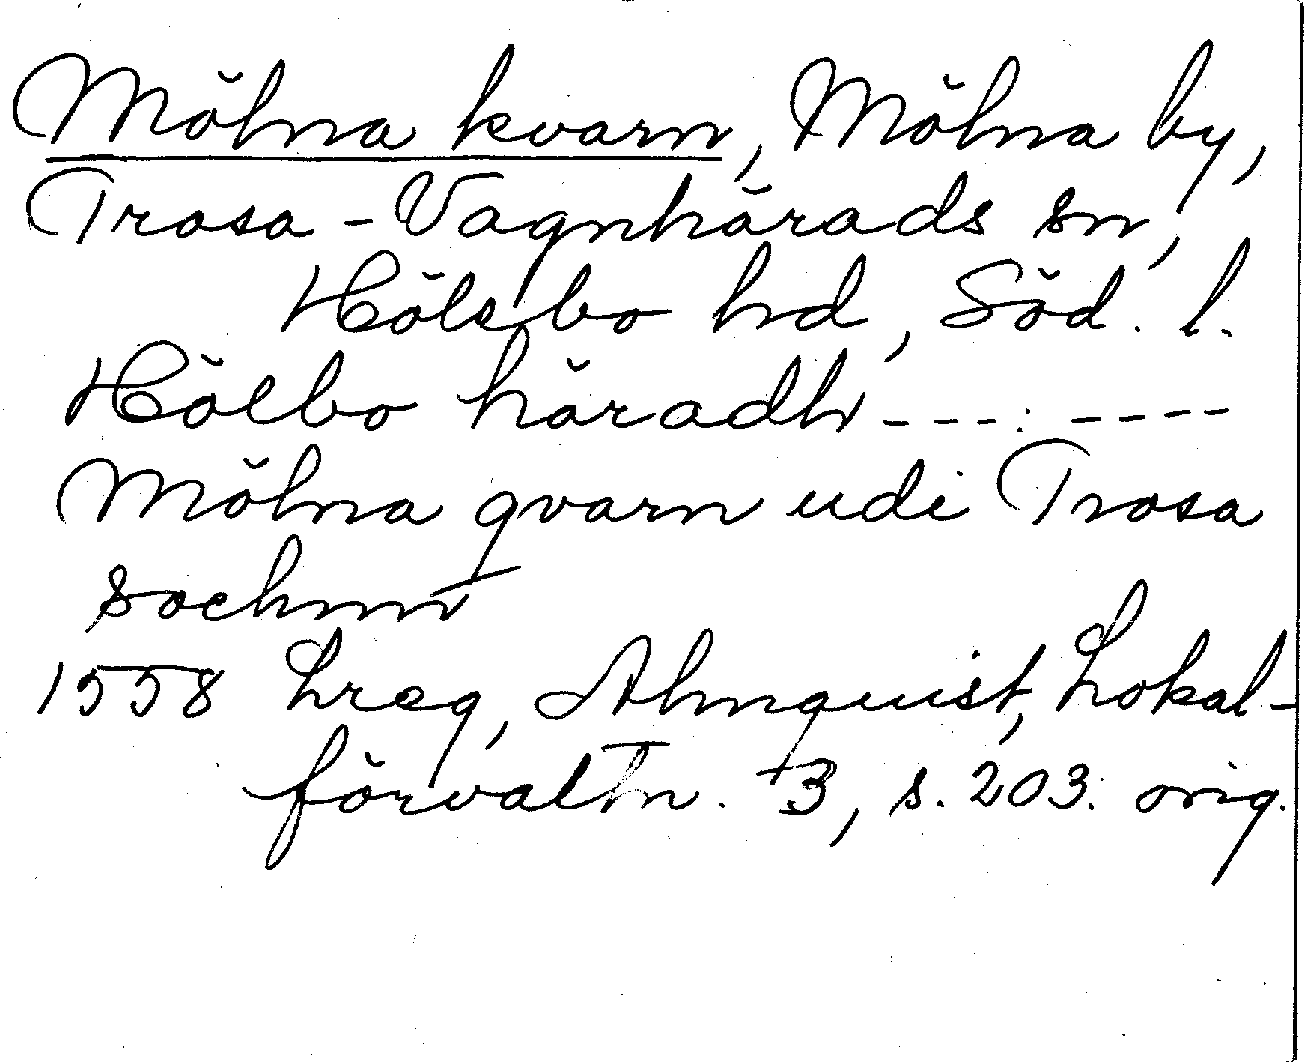 Mölna kvarn, Mölna by,
Trosa-Vagnhärads sn,
Hölebo hd, Söd. l.
Hölbo häradh ---:----
Mölna qvarn udi Trosa
sochnn
1558 hreg, Almquist, Lokal-
förvaltn. 3, s. 203. orig.